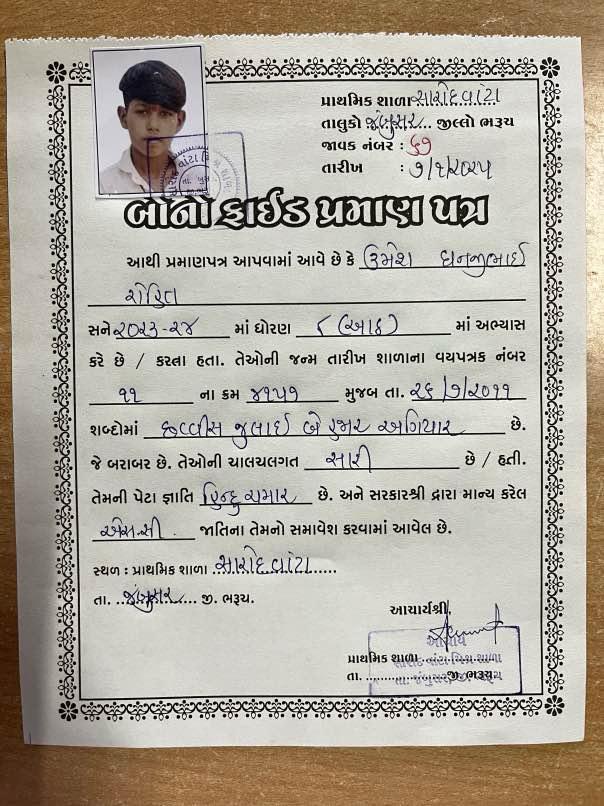 પ્રાથમિક શાળા સારોદવાંટા
તાલુકો જંબુસર... જીલ્લો ભરૂચ
જાવક નંબર : ૬૭
તારીખ : ૭/૧/૨૦૨૫
બોનો ફાઈડ પ્રમાણ પત્ર
આથી પ્રમાણપત્ર આપવામાં આવે છે કે ઉમેશ ધનજીભાઈ
રોહિત
સને ૨૦૨૩-૨૪ માં ધોરણ ૮ (આઠ) માં અભ્યાસ
કરે છે / કરતા હતા. તેઓની જન્મ તારીખ શાળાના વયપત્રક નંબર
૧૧ ના ક્રમ ૪૧૫૧ મુજબ તા. ૨૬/૭/૨૦૧૧
શબ્દોમાં છવ્વીસ જુલાઈ બે હજાર અગિયાર છે.
જે બરાબર છે. તેઓની ચાલચલગત સારી છે / હતી.
તેમની પેટા જ્ઞાતિ હિન્દુ ચમાર છે. અને સરકારશ્રી દ્વારા માન્ય કરેલ
એસ.સી. જાતિના તેમનો સમાવેશ કરવામાં આવેલ છે.
સ્થળ : પ્રાથમિક શાળા ..સારોદવાંટા......
તા. ...જંબુસર..... જી. ભરૂચ.
આચાર્યશ્રી,
આચાર્ય
પ્રાથમિક શાળા
સારોદ વાંટા મિશ્ર શાળા
તા. .................... જી. ભરૂચ.
તા. જંબુસર, જી. ભરૂચ